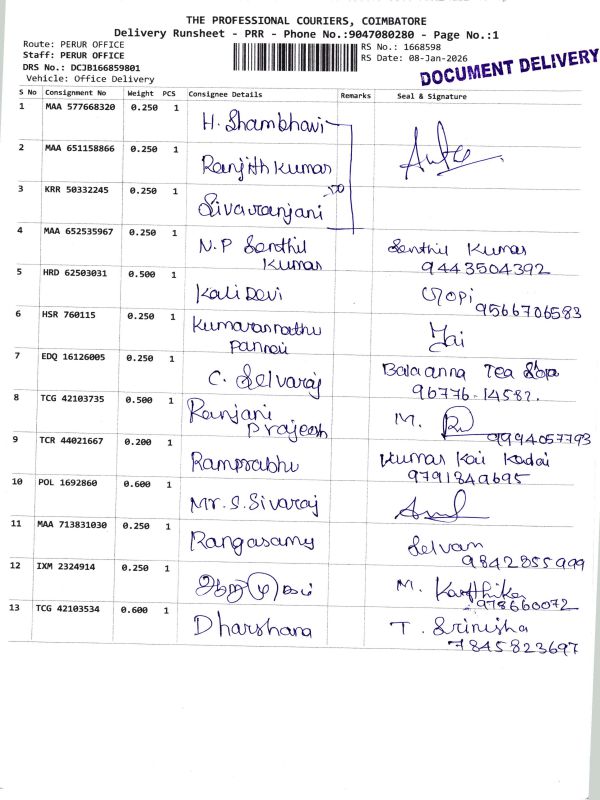 THE PROFESSIONAL COURIERS, COIMBATORE
Delivery Runsheet - PRR - Phone No.:9047080280 - Page No.:1
Route: PERUR OFFICE
RS No.: 1668598
Staff: PERUR OFFICE
RS Date: 08-Jan-2026
DRS No.: DCJB166859801
Vehicle: Office Delivery
DOCUMENT DELIVERY
S No Consignment No Weight PCS Consignee Details Remarks Seal & Signature
1 MAA 577668320 0.250 1 H. Shambhavi
2 MAA 651158866 0.250 1 Ranjith Kumar
3 KRR 50332245 0.250 1 Sivaranjani
4 MAA 652535967 0.250 1 N.P Senthil Kumar Senthil Kumar
9443504392
5 HRD 62503031 0.500 1 Kali Devi Gopi
9566706583
6 HSR 760115 0.250 1 Jai
7 EDQ 16126005 0.250 1 C. Selvaraj Balaanna Tea
96776-14582.
8 TCG 42103735 0.500 1 Ranjani Prajeesh M.
9994057793
9 TCR 44021667 0.200 1 Ramprabhu Kumar Kai Kadai
9791849695
10 POL 1692860 0.600 1 Mr. S. Sivaraj
11 MAA 713831030 0.250 1 Rangasamy Selvam
9842855999
12 IXM 2324914 0.250 1 M. Karthika
978660072
13 TCG 42103534 0.600 1 Dharshana T. Srinisha
7845823697